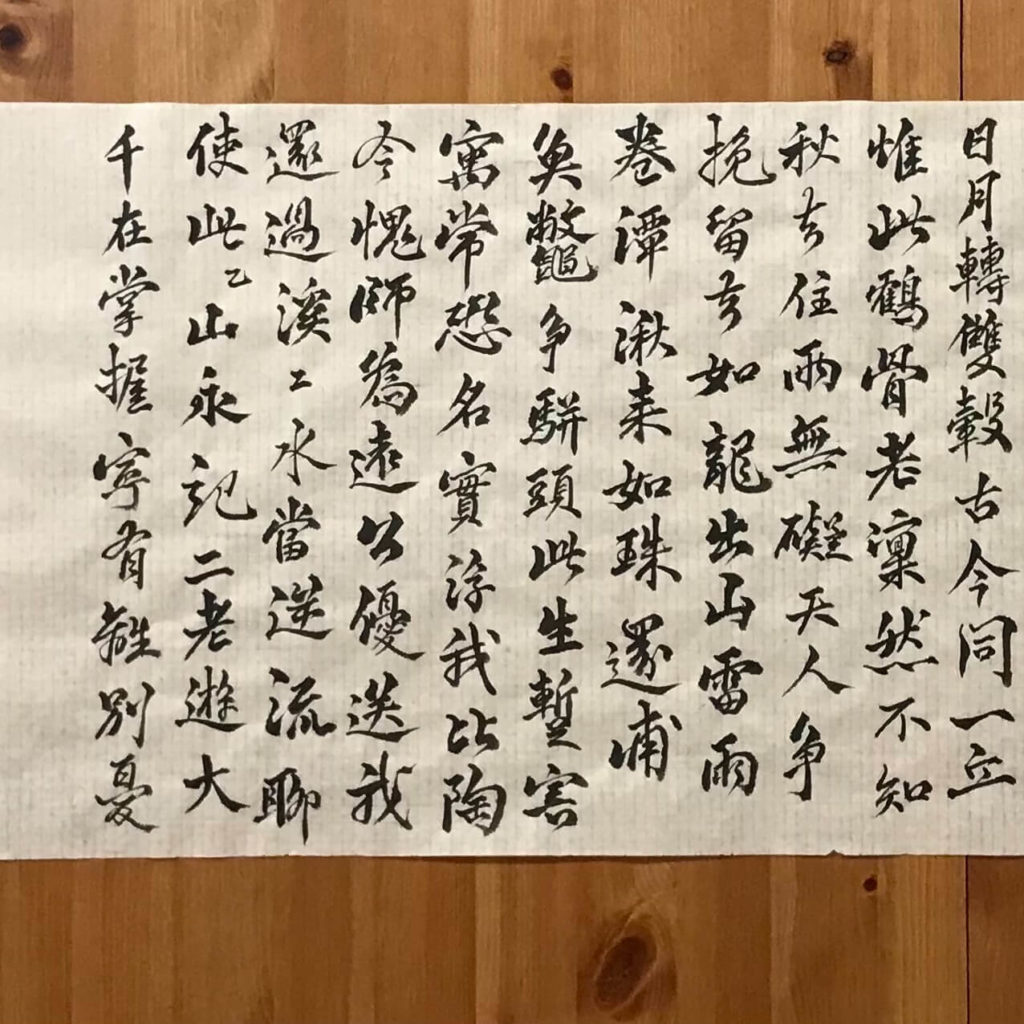 日月轉雙轂古今同一丘
惟此鶴骨老凜然不知
秋去住兩無礙天人爭
挽留去如龍出山雷雨
卷潭湫来如珠還浦
魚鱉爭駢頭此生暫寄
寓常恐名實浮我比陶
令愧師為遠公優送我
還過溪〻水當逆流聊
使此山永記二老遊大
千在掌握寧有離別憂